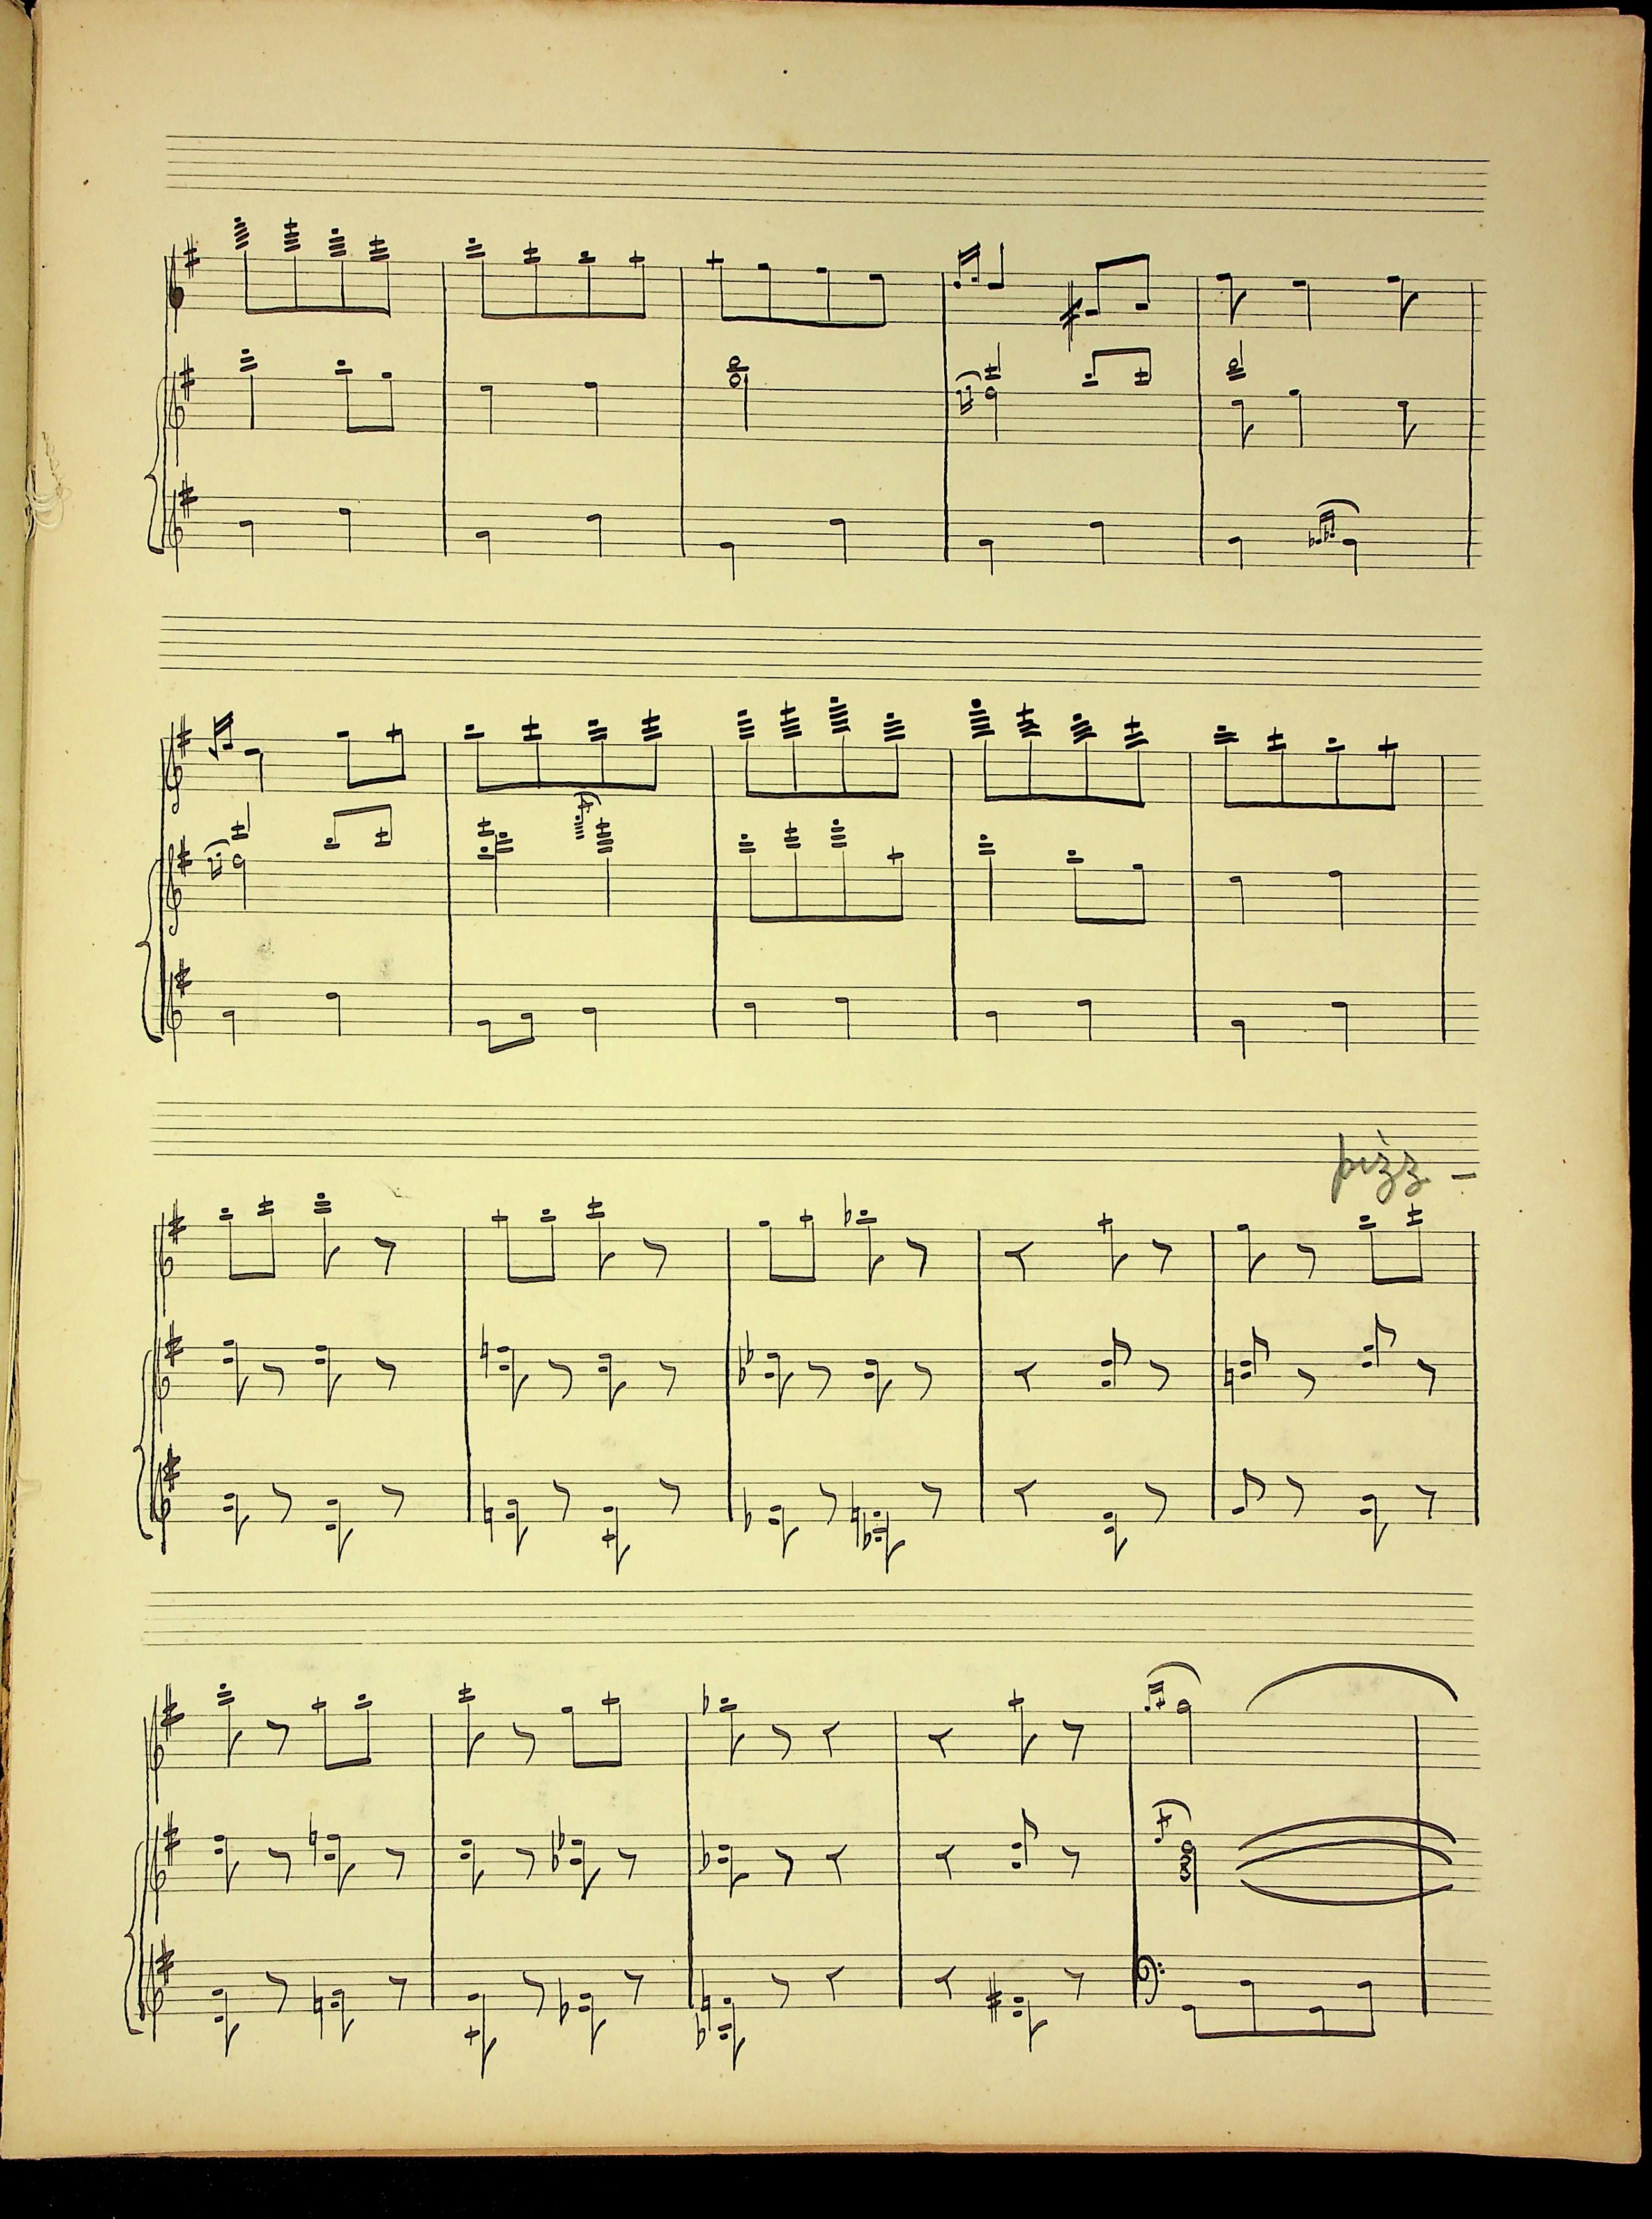 pizz -